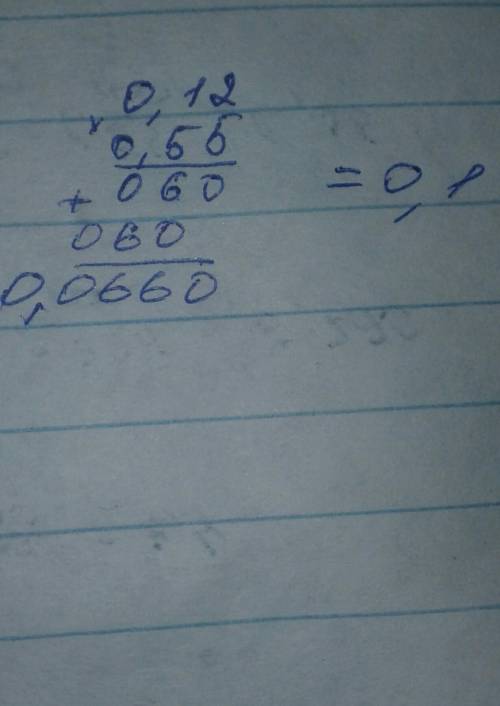 0,12
×
0,55
+ 060
060
0,0660
= 0,1